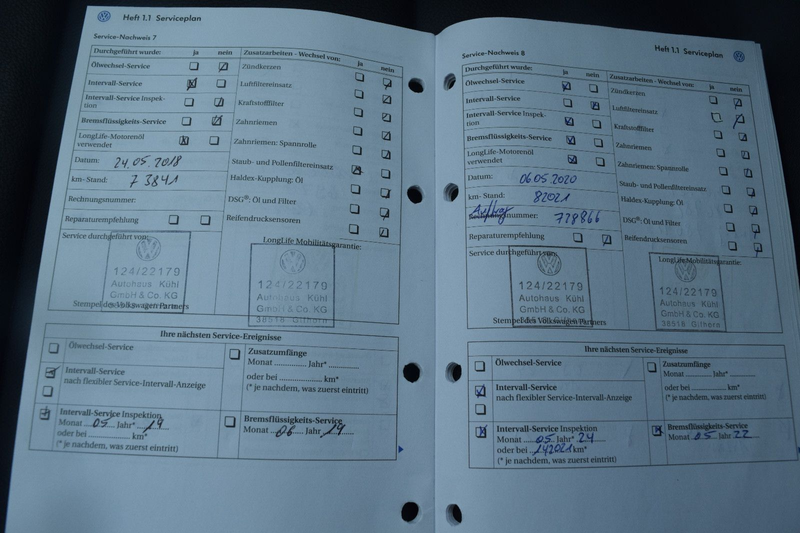 Heft 1.1 Serviceplan
Service-Nachweis 7
Durchgeführt wurde: ja nein
Ölwechsel-Service
Intervall-Service
Intervall-Service Inspek-
tion
Bremsflüssigkeits-Service
LongLife-Motorenöl
verwendet
Datum: 24.05.2018
km-Stand: 73841
Rechnungsnummer:
Reparaturempfehlung
Service durchgeführt von:
124/22179
Autohaus Kühl
GmbH & Co. KG
Stempel des Volkswagen Partners
Zusatzarbeiten - Wechsel von: ja nein
Zündkerzen
Luftfiltereinsatz
Kraftstofffilter
Zahnriemen
Zahnriemen: Spannrolle
Staub- und Pollenfiltereinsatz
Haldex-Kupplung: Öl
DSG®: Öl und Filter
Reifendrucksensoren
LongLife Mobilitätsgarantie:
124/22179
Autohaus Kühl
GmbH & Co. KG
38518 Gifhorn
Ihre nächsten Service-Ereignisse
Ölwechsel-Service
Intervall-Service
nach flexibler Service-Intervall-Anzeige
Intervall-Service Inspektion
Monat 05 Jahr* 19
oder bei ............ km*
(* je nachdem, was zuerst eintritt)
Zusatzumfänge
Monat ............ Jahr* ............
oder bei ............ km*
(* je nachdem, was zuerst eintritt)
Bremsflüssigkeits-Service
Monat 06 Jahr 19
Heft 1.1 Serviceplan
Service-Nachweis 8
Durchgeführt wurde: ja nein
Ölwechsel-Service
Intervall-Service
Intervall-Service Inspek-
tion
Bremsflüssigkeits-Service
LongLife-Motorenöl
verwendet
Datum: 06.05.2020
km- Stand: 82021
Auftrag
Rechnungsnummer: 728866
Reparaturempfehlung
Service durchgeführt von:
124/22179
Autohaus Kühl
GmbH & Co. KG
Stempel des Volkswagen Partners
Zusatzarbeiten - Wechsel von: ja nein
Zündkerzen
Luftfiltereinsatz
Kraftstofffilter
Zahnriemen
Zahnriemen: Spannrolle
Staub- und Pollenfiltereinsatz
Haldex-Kupplung: Öl
DSG®: Öl und Filter
Reifendrucksensoren
LongLife Mobilitätsgarantie:
124/22179
Autohaus Kühl
GmbH & Co. KG
38518 Gifhorn
Ihre nächsten Service-Ereignisse
Ölwechsel-Service
Intervall-Service
nach flexibler Service-Intervall-Anzeige
Intervall-Service Inspektion
Monat 05 Jahr* 24
oder bei 142021 km*
(* je nachdem, was zuerst eintritt)
Zusatzumfänge
Monat ............ Jahr* ............
oder bei ............ km*
(* je nachdem, was zuerst eintritt)
Bremsflüssigkeits-Service
Monat 05 Jahr 22